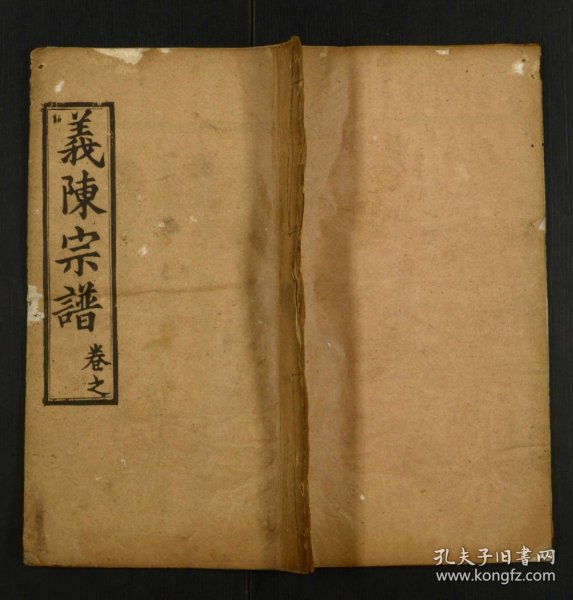 義陳宗譜
卷之
孔夫子旧書网
www.kongfz.com